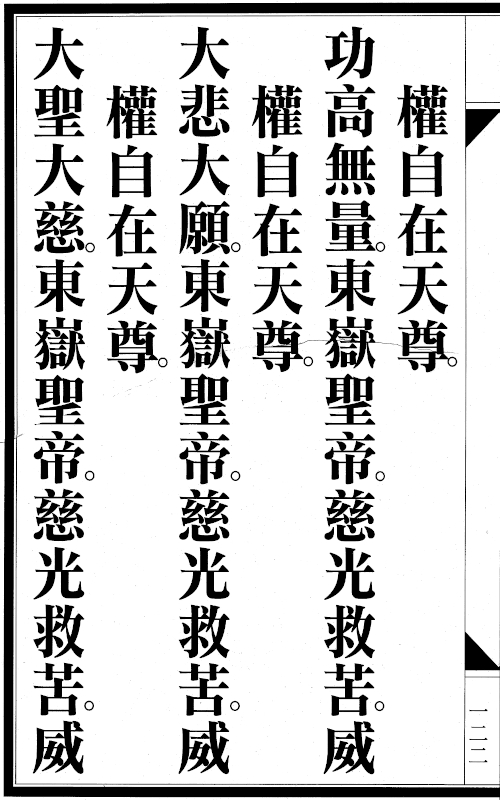 權自在天尊。
功高無量。東嶽聖帝。慈光救苦。威
權自在天尊。
大悲大願。東嶽聖帝。慈光救苦。威
權自在天尊。
大聖大慈。東嶽聖帝。慈光救苦。威
一二二